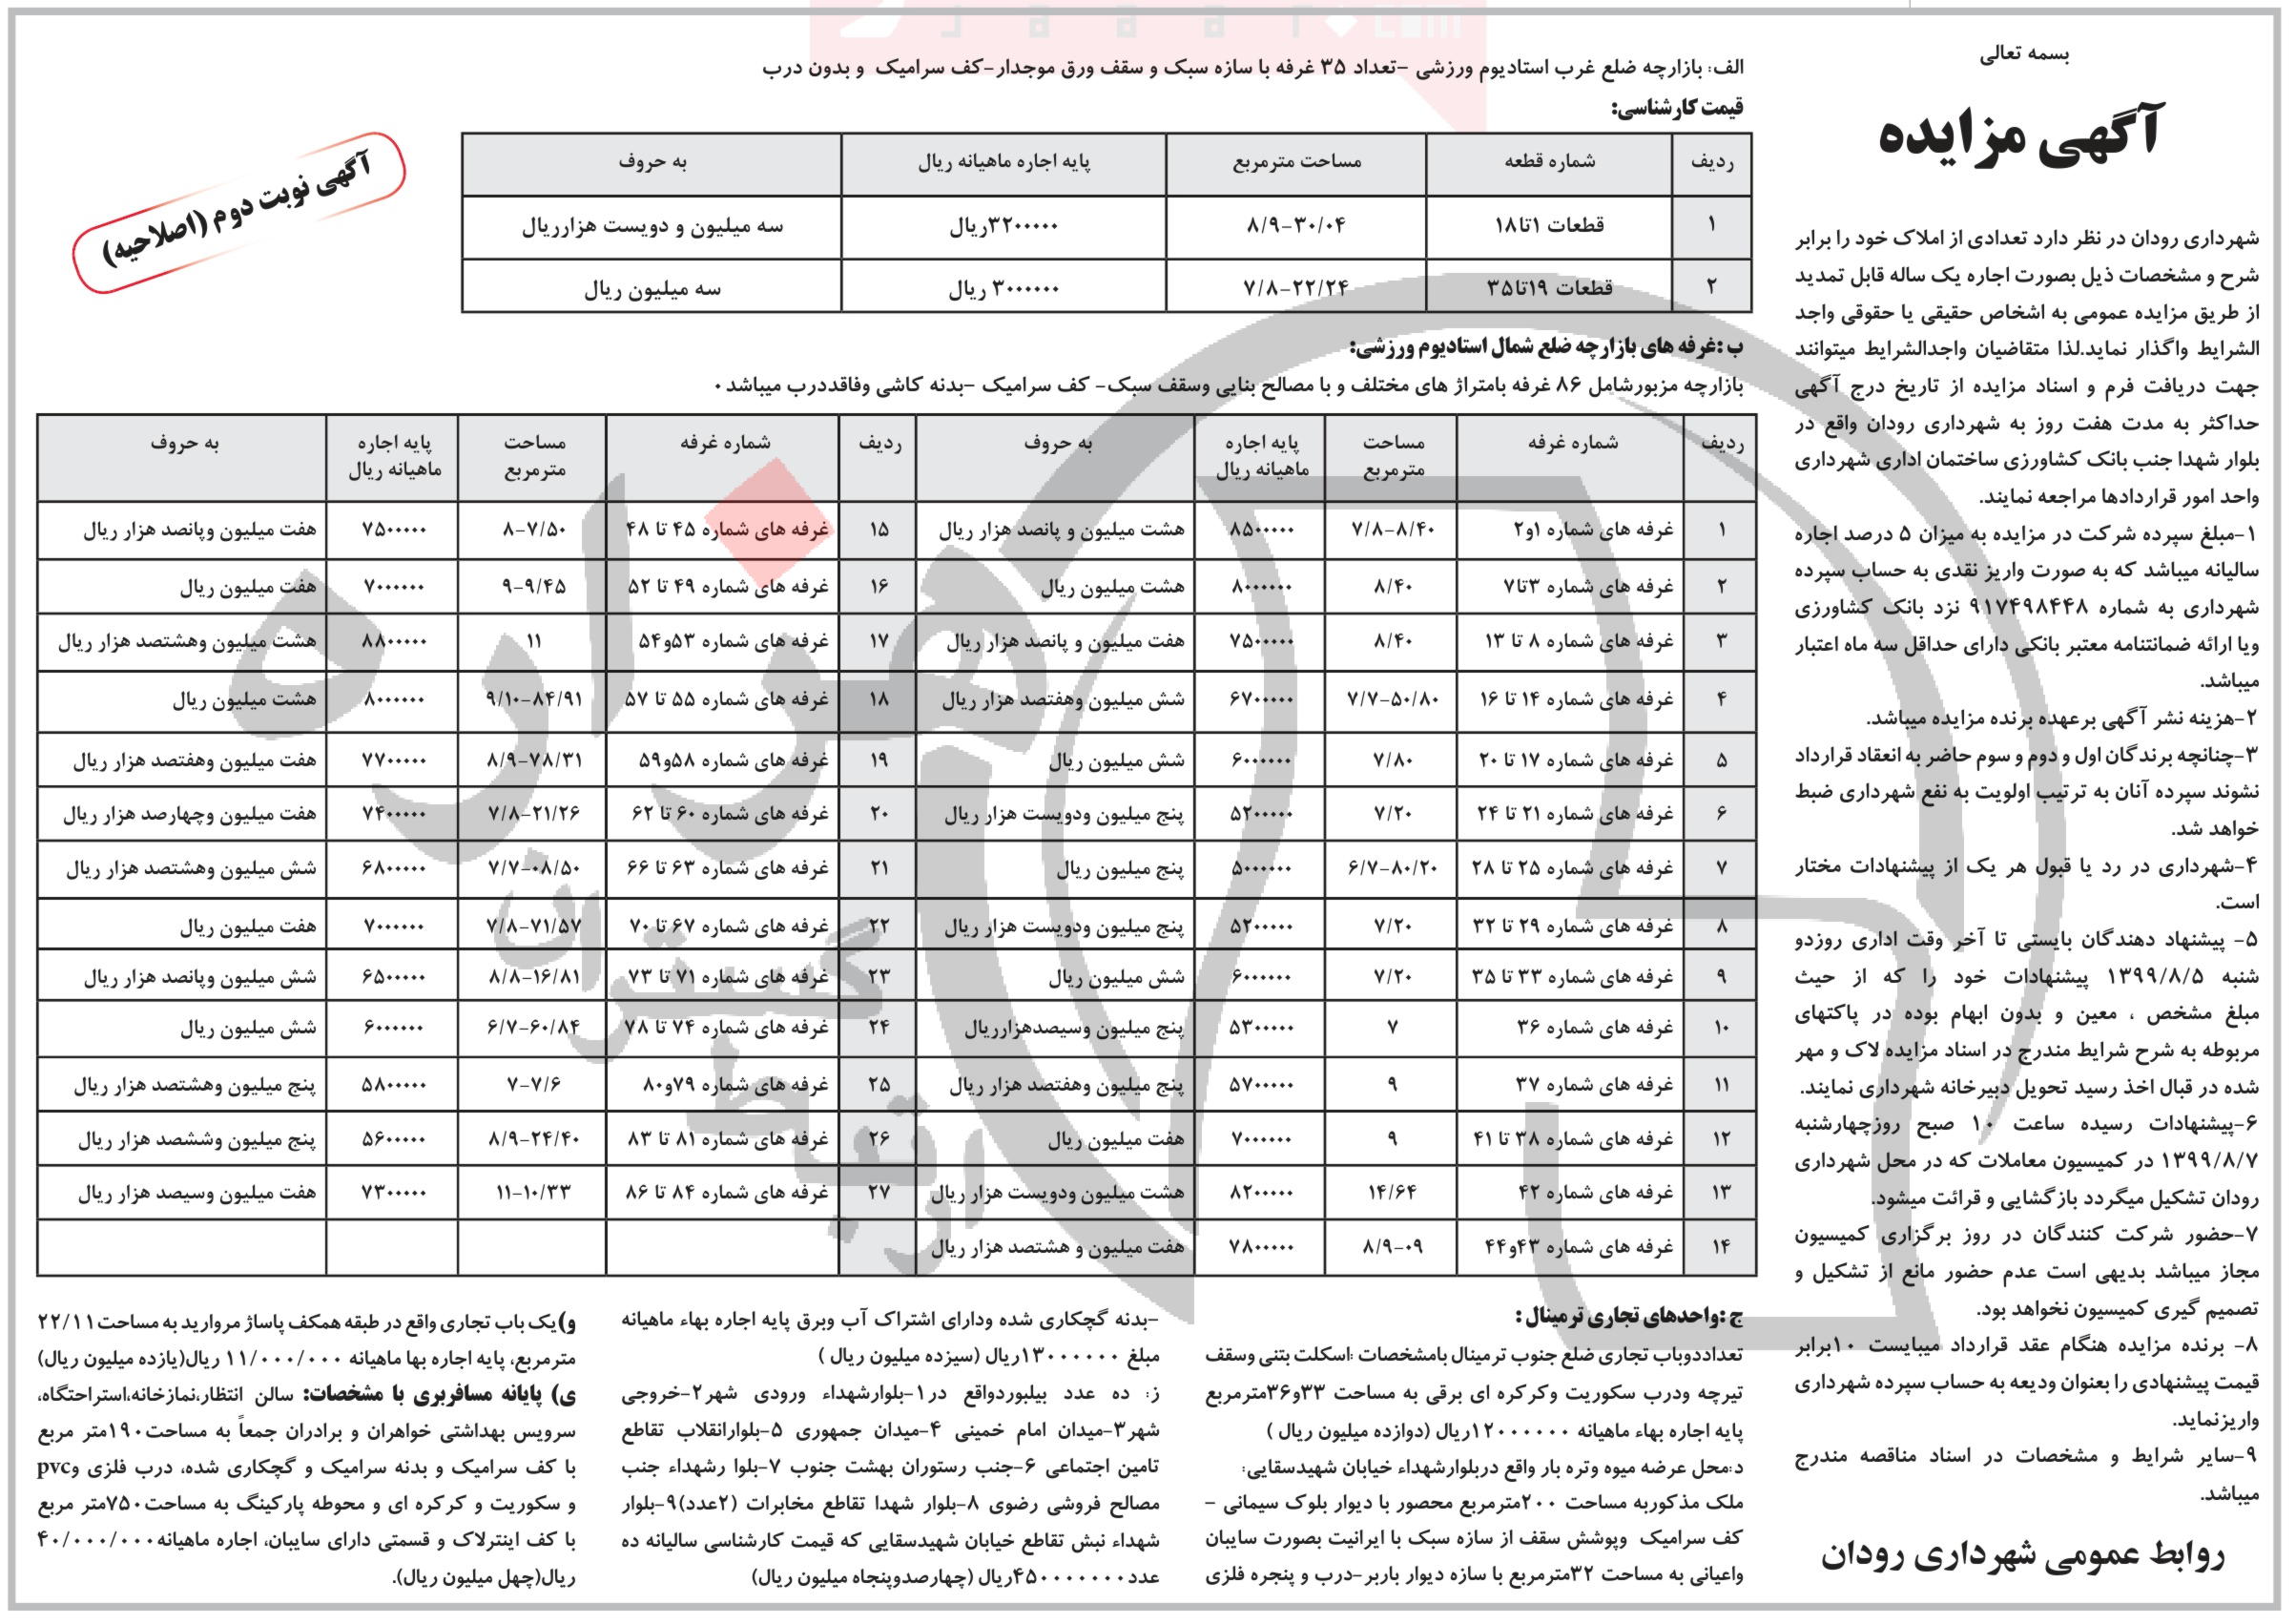 بسمه تعالی
آگهی مزایده
شهرداری رودان در نظر دارد تعدادی از املاک خود را برابر
شرح و مشخصات ذیل بصورت اجاره یک ساله قابل تمدید
از طریق مزایده عمومی به اشخاص حقیقی یا حقوقی واجد
الشرایط واگذار نماید.لذا متقاضیان واجدالشرایط میتوانند
جهت دریافت فرم و اسناد مزایده از تاریخ درج آگهی
حداکثر به مدت هفت روز به شهرداری رودان واقع در
بلوار شهدا جنب بانک کشاورزی ساختمان اداری شهرداری
واحد امور قراردادها مراجعه نمایند.
۱-مبلغ سپرده شرکت در مزایده به میزان ۵ درصد اجاره
سالیانه میباشد که به صورت واریز نقدی به حساب سپرده
شهرداری به شماره ۹۱۷۴۹۸۴۴۸ نزد بانک کشاورزی
ویا ارائه ضمانتنامه معتبر بانکی دارای حداقل سه ماه اعتبار
میباشد.
۲-هزینه نشر آگهی برعهده برنده مزایده میباشد.
۳-چنانچه برندگان اول و دوم و سوم حاضر به انعقاد قرارداد
نشوند سپرده آنان به ترتیب اولویت به نفع شهرداری ضبط
خواهد شد.
۴-شهرداری در رد یا قبول هر یک از پیشنهادات مختار
است.
۵- پیشنهاد دهندگان بایستی تا آخر وقت اداری روزدو
شنبه ۱۳۹۹/۸/۵ پیشنهادات خود را که از حیث
مبلغ مشخص ، معین و بدون ابهام بوده در پاکتهای
مربوطه به شرح شرایط مندرج در اسناد مزایده لاک و مهر
شده در قبال اخذ رسید تحویل دبیرخانه شهرداری نمایند.
۶-پیشنهادات رسیده ساعت ۱۰ صبح روزچهارشنبه
۱۳۹۹/۸/۷ در کمیسیون معاملات که در محل شهرداری
رودان تشکیل میگردد بازگشایی و قرائت میشود.
۷-حضور شرکت کنندگان در روز برگزاری کمیسیون
مجاز میباشد بدیهی است عدم حضور مانع از تشکیل و
تصمیم گیری کمیسیون نخواهد بود.
۸- برنده مزایده هنگام عقد قرارداد میبایست ۱۰برابر
قیمت پیشنهادی را بعنوان ودیعه به حساب سپرده شهرداری
واریزنماید.
۹-سایر شرایط و مشخصات در اسناد مناقصه مندرج
میباشد.
روابط عمومی شهرداری رودان
الف: بازارچه ضلع غرب استادیوم ورزشی -تعداد ۳۵ غرفه با سازه سبک و سقف ورق موجدار-کف سرامیک و بدون درب
قیمت کارشناسی:
آگهی نوبت دوم (اصلاحیه)
ردیف شماره قطعه مساحت مترمربع پایه اجاره ماهیانه ریال به حروف
۱ قطعات ۱تا۱۸ ۸/۹-۳۰/۰۴ ۳۲۰۰۰۰۰ریال سه میلیون و دویست هزارریال
۲ قطعات ۱۹تا۳۵ ۷/۸-۲۲/۲۴ ۳۰۰۰۰۰۰ ریال سه میلیون ریال
ب :غرفه های بازارچه ضلع شمال استادیوم ورزشی:
بازارچه مزبورشامل ۸۶ غرفه بامتراژ های مختلف و با مصالح بنایی وسقف سبک- کف سرامیک -بدنه کاشی وفاقددرب میباشد ۰
ردیف شماره غرفه مساحت مترمربع پایه اجاره ماهیانه ریال به حروف ردیف شماره غرفه مساحت مترمربع پایه اجاره ماهیانه ریال به حروف
۱ غرفه های شماره ۱و۲ ۷/۸-۸/۴۰ ۸۵۰۰۰۰۰ هشت میلیون و پانصد هزار ریال ۱۵ غرفه های شماره ۴۵ تا ۴۸ ۸-۷/۵۰ ۷۵۰۰۰۰۰ هفت میلیون وپانصد هزار ریال
۲ غرفه های شماره ۳تا۷ ۸/۴۰ ۸۰۰۰۰۰۰ هشت میلیون ریال ۱۶ غرفه های شماره ۴۹ تا ۵۲ ۹-۹/۴۵ ۷۰۰۰۰۰۰ هفت میلیون ریال
۳ غرفه های شماره ۸ تا ۱۳ ۸/۴۰ ۷۵۰۰۰۰۰ هفت میلیون و پانصد هزار ریال ۱۷ غرفه های شماره ۵۳و۵۴ ۱۱ ۸۸۰۰۰۰۰ هشت میلیون وهشتصد هزار ریال
۴ غرفه های شماره ۱۴ تا ۱۶ ۷/۷-۵۰/۸۰ ۶۷۰۰۰۰۰ شش میلیون وهفتصد هزار ریال ۱۸ غرفه های شماره ۵۵ تا ۵۷ ۹/۱۰-۸۴/۹۱ ۸۰۰۰۰۰۰ هشت میلیون ریال
۵ غرفه های شماره ۱۷ تا ۲۰ ۷/۸۰ ۶۰۰۰۰۰۰ شش میلیون ریال ۱۹ غرفه های شماره ۵۸و۵۹ ۸/۹-۷۸/۳۱ ۷۷۰۰۰۰۰ هفت میلیون وهفتصد هزار ریال
۶ غرفه های شماره ۲۱ تا ۲۴ ۷/۲۰ ۵۲۰۰۰۰۰ پنج میلیون ودویست هزار ریال ۲۰ غرفه های شماره ۶۰ تا ۶۲ ۷/۸-۲۱/۲۶ ۷۴۰۰۰۰۰ هفت میلیون وچهارصد هزار ریال
۷ غرفه های شماره ۲۵ تا ۲۸ ۶/۷-۸۰/۲۰ ۵۰۰۰۰۰۰ پنج میلیون ریال ۲۱ غرفه های شماره ۶۳ تا ۶۶ ۷/۷-۰۸/۵۰ ۶۸۰۰۰۰۰ شش میلیون وهشتصد هزار ریال
۸ غرفه های شماره ۲۹ تا ۳۲ ۷/۲۰ ۵۲۰۰۰۰۰ پنج میلیون ودویست هزار ریال ۲۲ غرفه های شماره ۶۷ تا ۷۰ ۷/۸-۷۱/۵۷ ۷۰۰۰۰۰۰ هفت میلیون ریال
۹ غرفه های شماره ۳۳ تا ۳۵ ۷/۲۰ ۶۰۰۰۰۰۰ شش میلیون ریال ۲۳ غرفه های شماره ۷۱ تا ۷۳ ۸/۸-۱۶/۸۱ ۶۵۰۰۰۰۰ شش میلیون وپانصد هزار ریال
۱۰ غرفه های شماره ۳۶ ۷ ۵۳۰۰۰۰۰ پنج میلیون وسیصدهزارریال ۲۴ غرفه های شماره ۷۴ تا ۷۸ ۶/۷-۶۰/۸۴ ۶۰۰۰۰۰۰ شش میلیون ریال
۱۱ غرفه های شماره ۳۷ ۹ ۵۷۰۰۰۰۰ پنج میلیون وهفتصد هزار ریال ۲۵ غرفه های شماره ۷۹و۸۰ ۷-۷/۶ ۵۸۰۰۰۰۰ پنج میلیون وهشتصد هزار ریال
۱۲ غرفه های شماره ۳۸ تا ۴۱ ۹ ۷۰۰۰۰۰۰ هفت میلیون ریال ۲۶ غرفه های شماره ۸۱ تا ۸۳ ۸/۹-۲۴/۴۰ ۵۶۰۰۰۰۰ پنج میلیون وششصد هزار ریال
۱۳ غرفه های شماره ۴۲ ۱۴/۶۴ ۸۲۰۰۰۰۰ هشت میلیون ودویست هزار ریال ۲۷ غرفه های شماره ۸۴ تا ۸۶ ۱۱-۱۰/۳۳ ۷۳۰۰۰۰۰ هفت میلیون وسیصد هزار ریال
۱۴ غرفه های شماره ۴۳و۴۴ ۸/۹-۰۹ ۷۸۰۰۰۰۰ هفت میلیون و هشتصد هزار ریال
ج :واحدهای تجاری ترمینال :
تعداددوباب تجاری ضلع جنوب ترمینال بامشخصات :اسکلت بتنی وسقف
تیرچه ودرب سکوریت وکرکره ای برقی به مساحت ۳۳و۳۶مترمربع
پایه اجاره بهاء ماهیانه ۱۲۰۰۰۰۰۰ریال (دوازده میلیون ریال )
د:محل عرضه میوه وتره بار واقع دربلوارشهداء خیابان شهیدسقایی:
ملک مذکوربه مساحت ۲۰۰مترمربع محصور با دیوار بلوک سیمانی -
کف سرامیک وپوشش سقف از سازه سبک با ایرانیت بصورت سایبان
واعیانی به مساحت ۳۲مترمربع با سازه دیوار باربر-درب و پنجره فلزی
-بدنه گچکاری شده ودارای اشتراک آب وبرق پایه اجاره بهاء ماهیانه
مبلغ ۱۳۰۰۰۰۰۰ریال (سیزده میلیون ریال )
ز: ده عدد بیلبوردواقع در۱-بلوارشهداء ورودی شهر۲-خروجی
شهر۳-میدان امام خمینی ۴-میدان جمهوری ۵-بلوارانقلاب تقاطع
تامین اجتماعی ۶-جنب رستوران بهشت جنوب ۷-بلوا رشهداء جنب
مصالح فروشی رضوی ۸-بلوار شهدا تقاطع مخابرات (۲عدد)۹-بلوار
شهداء نبش تقاطع خیابان شهیدسقایی که قیمت کارشناسی سالیانه ده
عدد۴۵۰۰۰۰۰۰۰ریال (چهارصدوپنجاه میلیون ریال)
و)یک باب تجاری واقع در طبقه همکف پاساژ مروارید به مساحت۲۲/۱۱
مترمربع، پایه اجاره بها ماهیانه ۱۱/۰۰۰/۰۰۰ ریال(یازده میلیون ریال)
ی) پایانه مسافربری با مشخصات: سالن انتظار،نمازخانه،استراحتگاه،
سرویس بهداشتی خواهران و برادران جمعاً به مساحت۱۹۰متر مربع
با کف سرامیک و بدنه سرامیک و گچکاری شده، درب فلزی وpvc
و سکوریت و کرکره ای و محوطه پارکینگ به مساحت۷۵۰متر مربع
با کف اینترلاک و قسمتی دارای سایبان، اجاره ماهیانه۴۰/۰۰۰/۰۰۰
ریال(چهل میلیون ریال).
هزاره